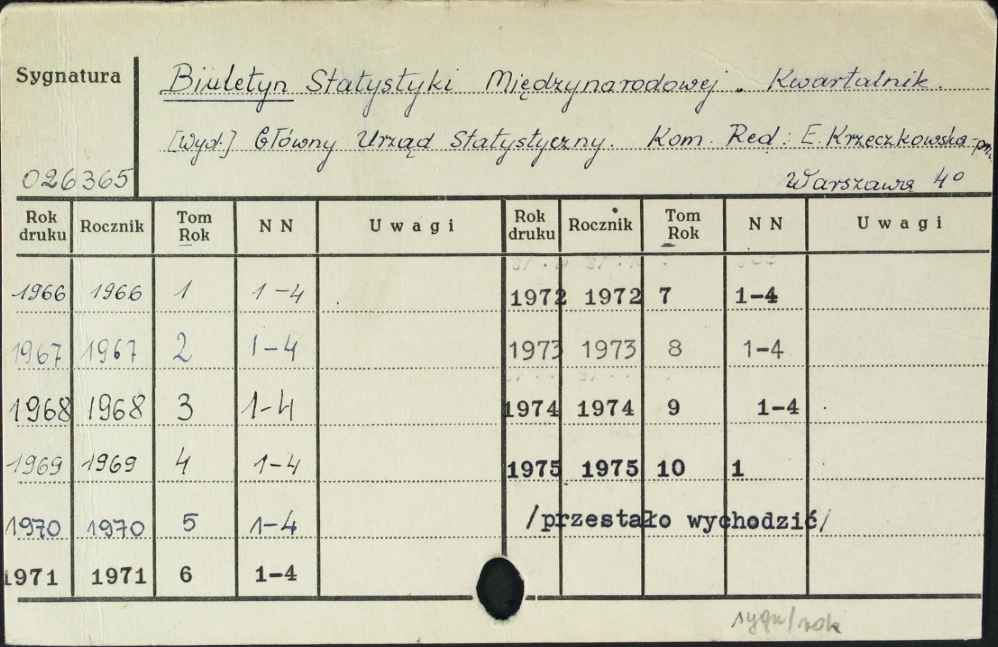 Sygnatura
Biuletyn Statystyki Międzynarodowej. Kwartalnik.
[Wyd.] Główny Urząd Statystyczny. Kom. Red: E. Krzeczkowska-pn.
026365 Warszawa 4°
Rok druku Rocznik Tom Rok NN Uwagi Rok druku Rocznik Tom Rok NN Uwagi
1966 1966 1 1-4 1972 1972 7 1-4
1967 1967 2 1-4 1973 1973 8 1-4
1968 1968 3 1-4 1974 1974 9 1-4
1969 1969 4 1-4 1975 1975 10 1
1970 1970 5 1-4 /przestało wychodzić/
1971 1971 6 1-4
sygn/rok